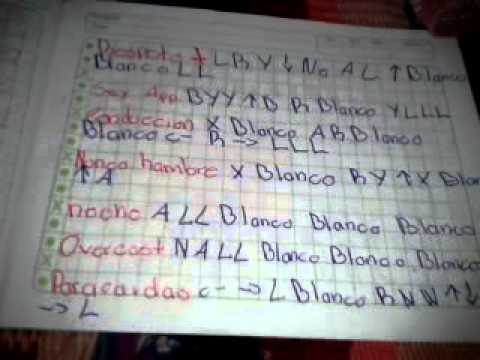 L B Y ↓ No A L ↑ Blanco
Blanco L L
B Y Y ↑ B B Blanco Y L L L
Conduccion X Blanco A B Blanco
Blanco c- B → L L L
Nunca hambre X Blanco B Y ↑ X Blan
↑ A
noche A L L Blanco Blanco Blanco
Overcoat N A L L Blanco Blanco Blanco
c- → L Blanco B N N ↑ ↓
→ L